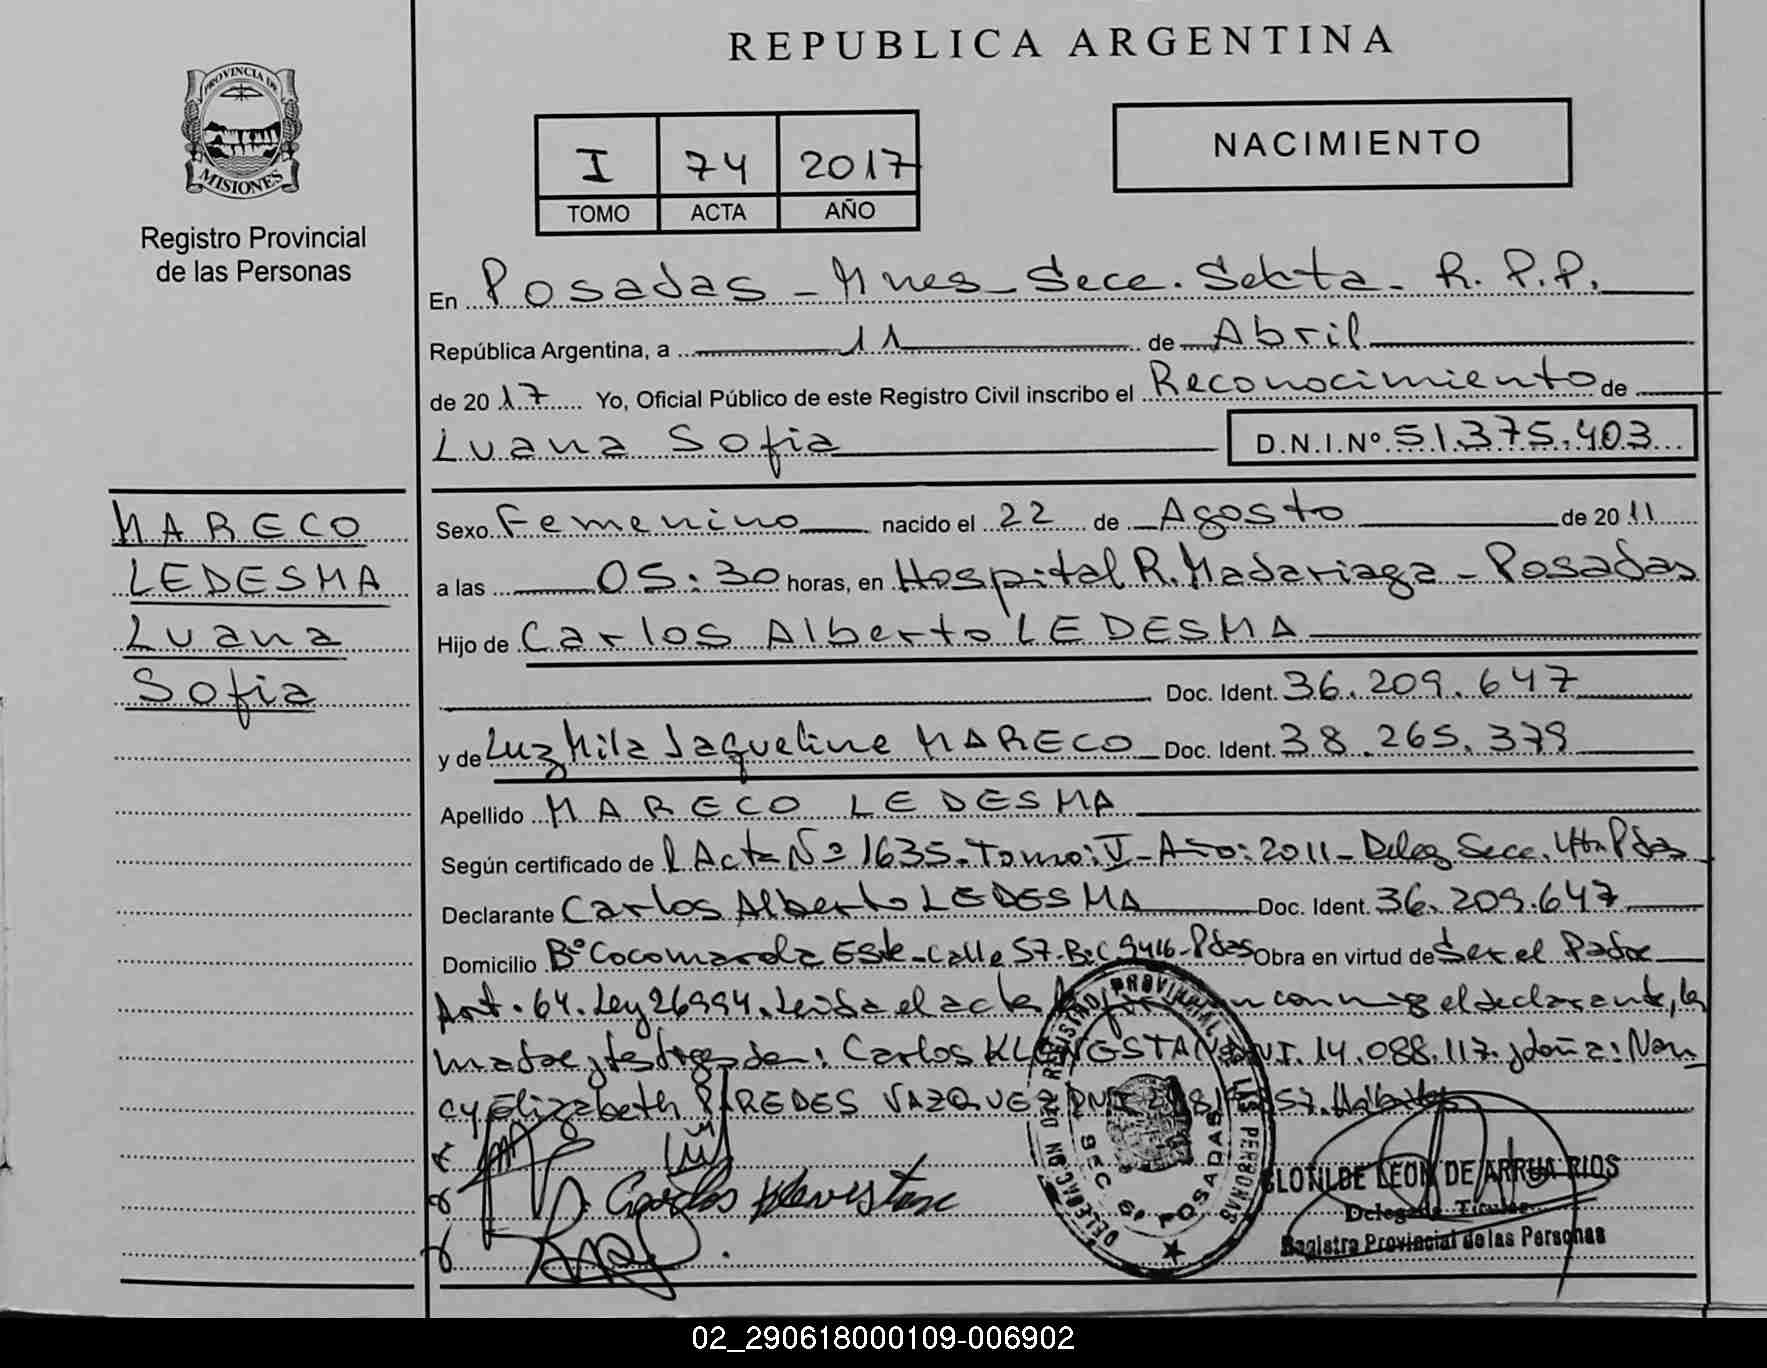 REPUBLICA ARGENTINA
PROVINCIA DE
MISIONES
Registro Provincial
de las Personas
I 74 2017
TOMO ACTA AÑO
NACIMIENTO
En Posadas - Mnes - Secc. Sekta - R.P.P.
República Argentina, a 11 de Abril
de 2017 Yo, Oficial Público de este Registro Civil inscribo el Reconocimiento de
Luana Sofia D.N.I.Nº 51.375.403
MARECO
LEDESMA
Luana
Sofia
Sexo Femenino nacido el 22 de Agosto de 2011
a las 05:30 horas, en Hospital R. Madariaga - Posadas
Hijo de Carlos Alberto LEDESMA
Doc. Ident. 36.209.647
y de Luz Mila Jaqueline MARECO Doc. Ident. 38.265.379
Apellido MARECO LEDESMA
Según certificado de l Acta Nº 1635 - Tomo: V - Año: 2011 - Deleg Secc. 4ta Pdas
Declarante Carlos Alberto LEDESMA Doc. Ident. 36.209.647
Domicilio Bº Cocomarola Este - Calle 57 - B: C 9416 - Pdas Obra en virtud de Ser el Padre
Art. 64. Ley 26994. Leida el acta conmigo el declarante, la
madre y testigos don: Carlos 14.088.117. y doña: Nan
cy Elizabeth PAREDES VAZQUEZ DNI
Carlos
DELEGACION DE REGISTRO PROVINCIAL DE LAS PERSONAS
SEC. 6ª POSADAS
CLOTILDE LEON DE ARRUA RIOS
Delegada Titular
Registro Provincial de las Personas
02_290618000109-006902